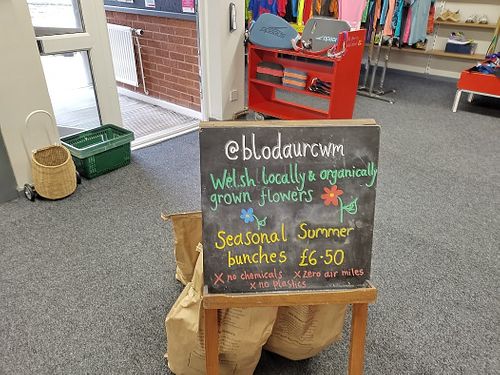 @blodaurcwm
Welsh locally & organically
grown flowers
Seasonal Summer
bunches £6.50
x no chemicals x zero air miles
x no plastics